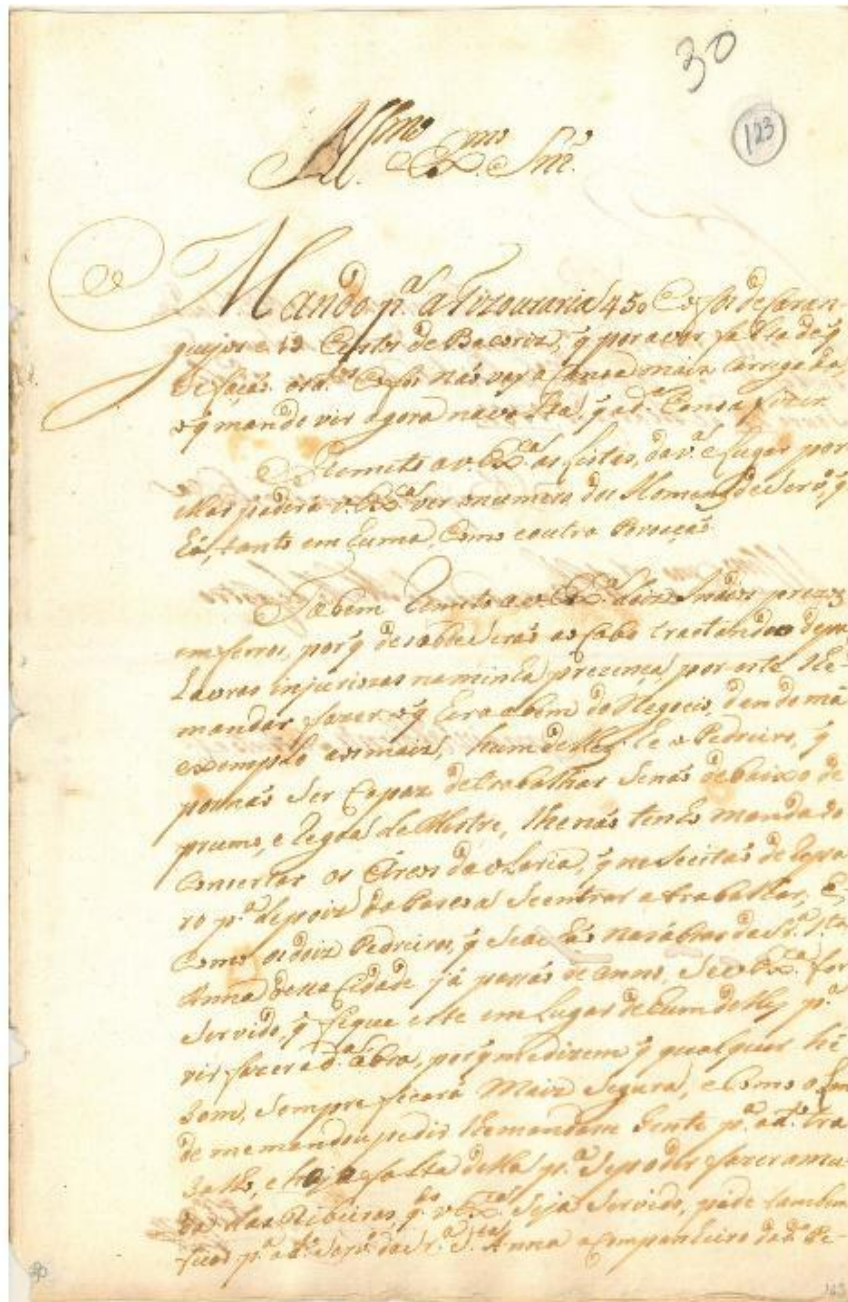 30
123
Ill.mo Ex.mo Snr.
Mando p.a a Tizouraria 450 Cofos de Caran-
guejos e 13 Cestos de Bacoriz, q̃ por aver falta de q.
os cofos não vay a Canoa maiz carregada,
o q̃ mando vir agora na volta, q̃ a d.a Canoa fizer.
Remeto a V. Ex.a as Listas, da V.a e Lugar por
ellas poderá V. Ex.a ver o numero dos Homens de Serv.o, q̃
há, tanto em huma, como em outra Povoação.
Tãobem Remeto a V. Ex.a doiz Indios prezos
em ferros, por q̃ desobedecerão ao Cabo tractando de pa-
lavras injuriozas na minha prezença, por este lhe
mandar fazer o q̃ hera a bem do Negocio, dando máo
exemplo aos maiz, hum delles he o Pedreiro, q̃
por não ser Capaz de trabalhar senão debaixo de
prumo, e regoa de Mestre, lhe não tenho mandado
Consertar os Arcos da Olaria, q̃ necessitão de repa-
ro p.a depoiz da Pascoa se entrar a trabalhar, e
como os doiz Pedreiros, q̃ se achão nas obras da Sr.a S.ta
Anna dessa Cidade já passa de anno, se V. Ex.a for
servido, q̃ fique este em Lugar de hum delles p.a
vir fazer a d.a obra, por q̃ me dizem q̃ qualquer hé
bom, sempre ficará Maiz segura, e como o
de me mandou pedir lhe mandasse Gente p.a a d.a
e haja falta della p.a se poder fazer
das Ribeiras q̃ V. Ex.a seja servido, pode tambem
ficar p.a a d.o Serv.o da Sr.a S.ta Anna o Companheiro do d.o Pe-
30
123